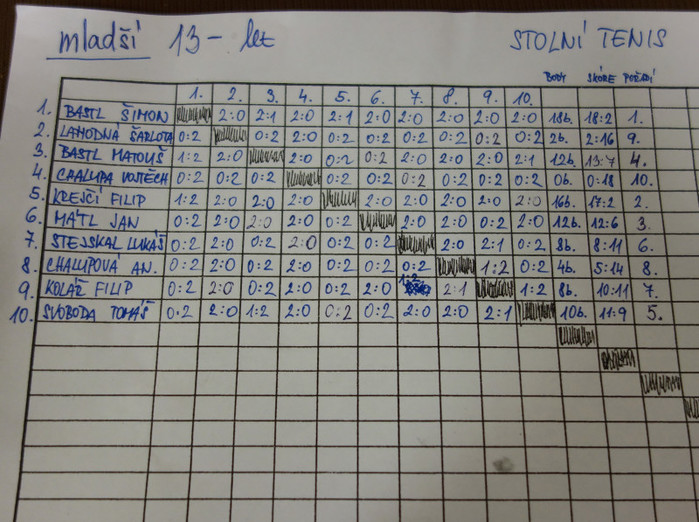 mladší 13 - let STOLNÍ TENIS
BODY SKÓRE POŘADÍ
1. 2. 3. 4. 5. 6. 7. 8. 9. 10.
1. BASTL ŠIMON 2:0 2:1 2:0 2:1 2:0 2:0 2:0 2:0 2:0 18b. 18:2 1.
2. LAHODNÁ ŠARLOTA 0:2 0:2 2:0 0:2 0:2 0:2 0:2 0:2 0:2 2b. 2:16 9.
3. BASTL MATOUŠ 1:2 2:0 2:0 0:2 0:2 2:0 2:0 2:0 2:1 12b. 13:7 4.
4. CHALUPA VOJTĚCH 0:2 0:2 0:2 0:2 0:2 0:2 0:2 0:2 0:2 0b. 0:18 10.
5. KREJČÍ FILIP 1:2 2:0 2:0 2:0 2:0 2:0 2:0 2:0 2:0 16b. 17:2 2.
6. MÁTL JAN 0:2 2:0 2:0 2:0 0:2 2:0 2:0 0:2 2:0 12b. 12:6 3.
7. STEJSKAL LUKÁŠ 0:2 2:0 0:2 2:0 0:2 0:2 2:0 2:1 0:2 8b. 8:11 6.
8. CHALUPOVÁ AN. 0:2 2:0 0:2 2:0 0:2 0:2 0:2 1:2 0:2 4b. 5:14 8.
9. KOLÁŘ FILIP 0:2 2:0 0:2 2:0 0:2 2:0 1:2 2:1 1:2 8b. 10:11 7.
10. SVOBODA TOMÁŠ 0:2 2:0 1:2 2:0 0:2 0:2 2:0 2:0 2:1 10b. 11:9 5.